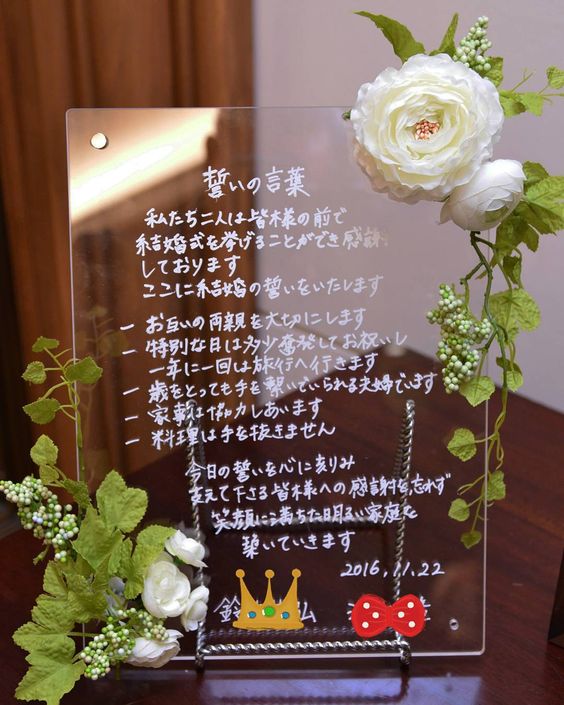 誓いの言葉
私たち二人は皆様の前で
結婚式を挙げることができ感謝
しております
ここに結婚の誓いをいたします
一 お互いの両親を大切にします
一 特別な日は多少奮発してお祝いし
一年に一回は旅行へ行きます
一 歳をとっても手を繋いでいられる夫婦でいます
一 家事は協力しあいます
一 料理は手を抜きません
今日の誓いを心に刻み
支えて下さる皆様への感謝を忘れず
笑顔に満ちた明るい家庭を
築いていきます
2016.11.22